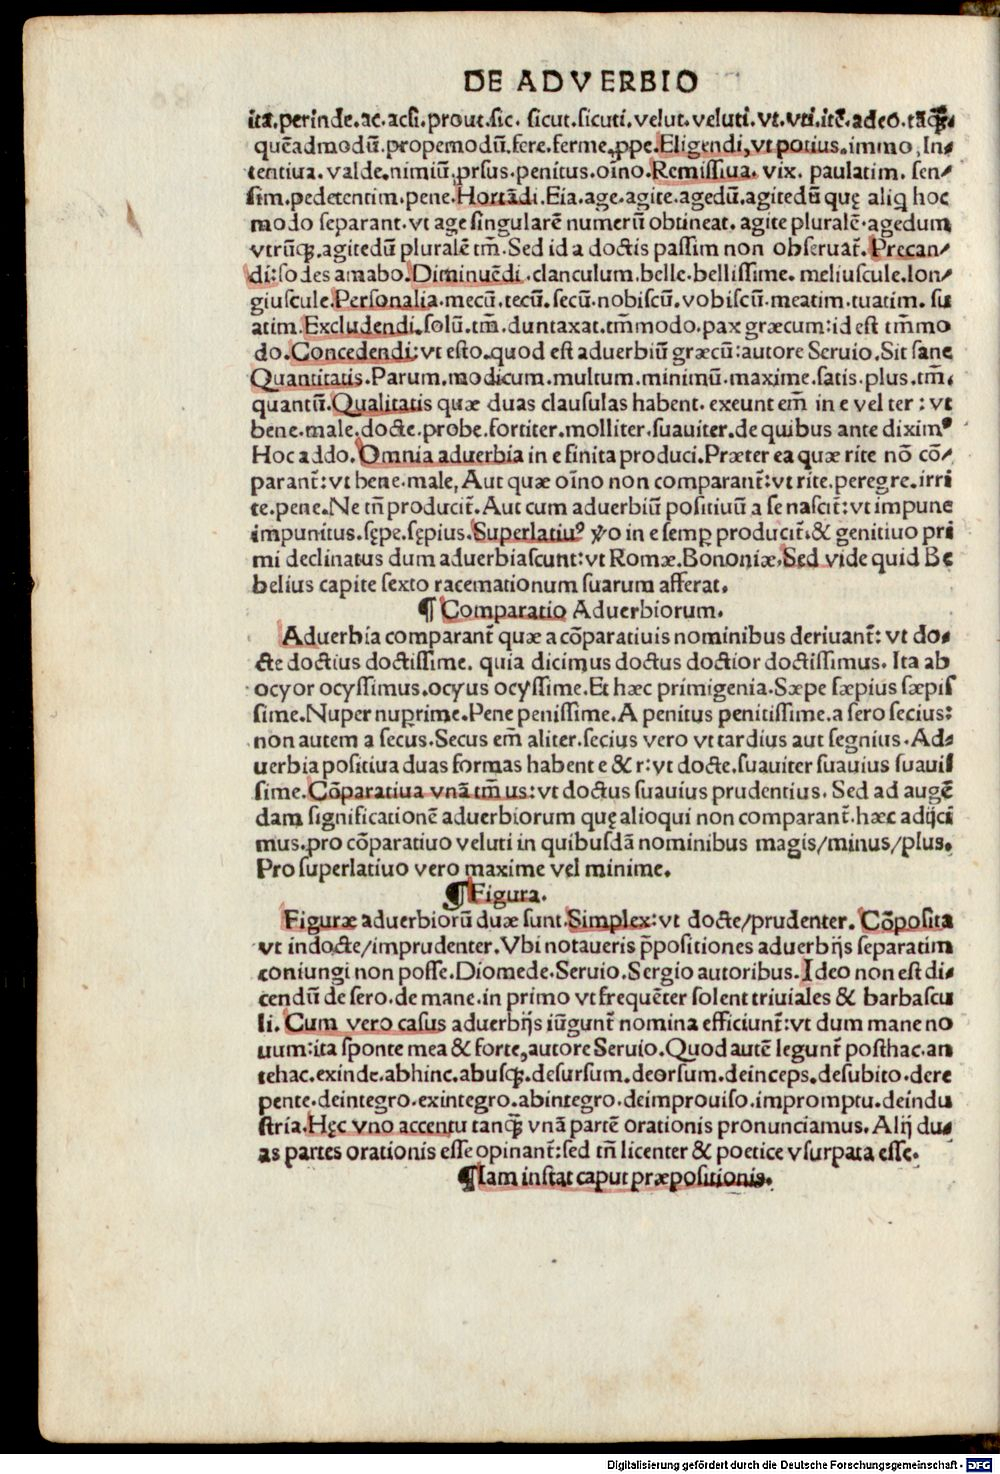 DE ADVERBIO
itã.perinde.ac.acsi.prout.sic. sicut.sicuti.velut.veluti.vt.vti.itẽ.adeo.tãꝙ̃.
quẽadmodũ.propemodũ.fere.ferme.ꝓpe.Eligendi,vt potius.immo,In-
tentiua. valde.nimiũ.ꝓrsus.penitus.oĩno.Remissiua. vix. paulatim. sen/
sim.pedetentim.pene.Hortãdi.Eia.age.agite.agedũ.agitedũ quę aliq̃ hoc
modo separant.vt age singularẽ numerũ obtineat. agite pluralẽ.agedum
vtrũꝙ.agitedũ pluralẽ tm̃.Sed id a doctis passim non obseruat̃.Precan/
di:sodes amabo.Diminuẽdi.clanculum.belle.bellissime. meliuscule.lon/
giuscule.Personalia.mecũ.tecũ.secũ.nobiscũ.vobiscũ.meatim.tuatim. su
atim.Excludendi.solũ.tm̃.duntaxat.tm̃modo.pax græcum:id est tm̃mo
do.Concedendi:vt esto.quod est aduerbiũ græcũ:autore Seruio.Sit sane
Quantitatis.Parum.modicum.multum.minimũ.maxime.satis.plus.tm̃.
quantũ.Qualitatis quæ duas clausulas habent. exeunt em̃ in e vel ter : vt
bene.male.docte.probe.fortiter.molliter.suauiter.de quibus ante diximꝰ
Hoc addo.Omnia aduerbia in e finita produci.Præter ea quæ rite nõ cõ/
parant̃:vt bene.male, Aut quæ oĩno non comparant̃:vt rite.peregre.irri
te.pene.Ne tñ producit̃.Aut cum aduerbiũ positiuũ a se nascit̃:vt impune
impunitus.sępe.sępius.Superlatiuꝰ ꝟo in e semꝑ producit̃.& genitiuo pri
mi declinatus dum aduerbiascunt:vt Romæ.Bononiæ,Sed vide quid Be
belius capite sexto racemationum suarum afferat.
¶ Comparatio Aduerbiorum.
Aduerbia comparant̃ quæ a cõparatiuis nominibus deriuant̃: vt do-
cte doctius doctissime. quia dicimus doctus doctior doctissimus. Ita ab
ocyor ocyssimus.ocyus ocyssime.Et hæc primigenia.Sæpe sæpius sæpis
sime.Nuper nuꝑrime.Pene penissime.A penitus penitissime.a sero secius:
non autem a secus.Secus em̃ aliter.secius vero vt tardius aut segnius.Ad-
uerbia positiua duas formas habent e & r:vt docte.suauiter suauius suauis
sime.Cõparatiua vnã tm̃ us:vt doctus suauius prudentius. Sed ad augẽ
dam significationẽ aduerbiorum quę alioqui non comparant̃.hæc adijci
mus.pro cõparatiuo veluti in quibusdã nominibus magis/minus/plus.
Pro superlatiuo vero maxime vel minime.
¶Figura.
Figuræ aduerbiorũ duæ sunt.Simplex:vt docte/prudenter. Cõposita
vt indocte/imprudenter.Vbi notaueris p̃positiones aduerbijs separatim
coniungi non posse.Diomede.Seruio.Sergio autoribus.Ideo non est di-
cendũ de sero.de mane.in primo vt frequẽter solent triuiales & barbascu
li. Cum vero casus aduerbijs iũgunt̃ nomina efficiunt̃:vt dum mane no
uum:ita sponte mea & forte,autore Seruio.Quod autẽ legunt̃ posthac.an
tehac.exinde.abhinc.abusꝙ.desursum.deorsum.deinceps.desubito.dere
pente.deintegro.exintegro.abintegro.deimprouiso.impromptu.deindu
stria.Hęc vno accentu tanꝙ̃ vnã partẽ orationis pronunciamus. Alij du-
as partes orationis esse opinant̃:sed tñ licenter & poetice vsurpata esse.
¶Iam instat caput præpositionis.
Digitalisierung gefördert durch die Deutsche Forschungsgemeinschaft - DFG